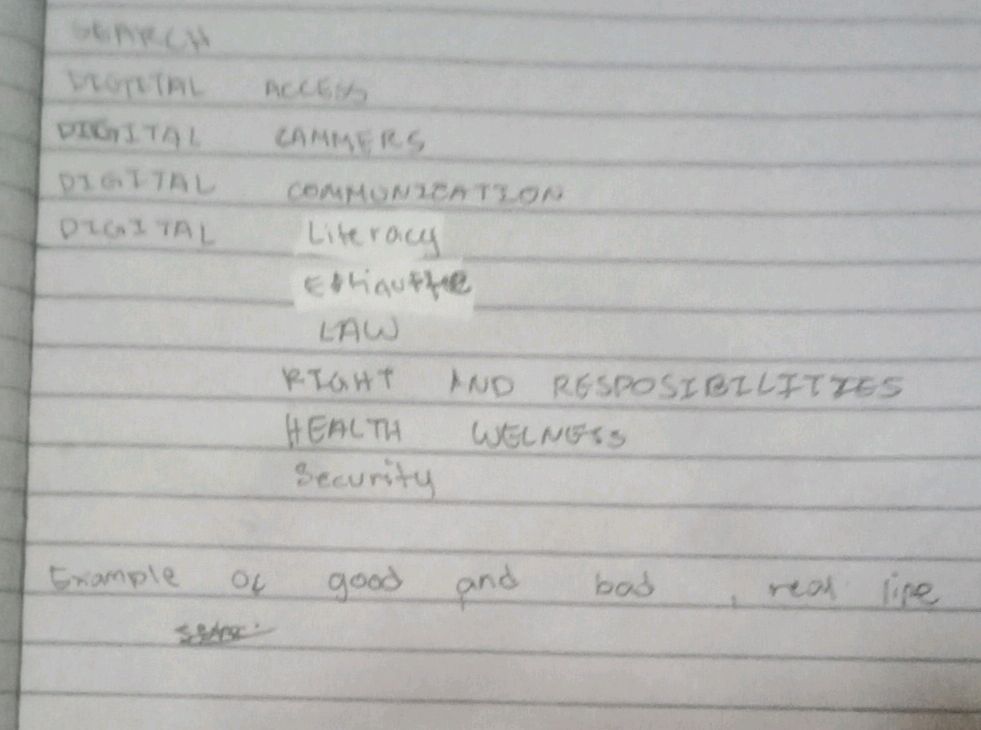 SEARCH
DIGITAL ACCESS
DIGITAL CAMMERS
DIGITAL COMMUNICATION
DIGITAL Literacy
LAW
RIGHT AND RESPOSIBILITIES
HEALTH WELNESS
Security
Example of good and bad , real life